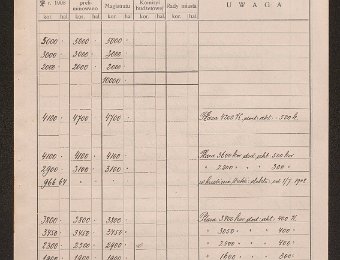 r. 1908 preliminowano Magistratu Komisyi budżetowej Rady miasta UWAGA
kor. hal. kor. hal. kor. hal. kor. hal. kor. hal.
5000 5000 5000
3000 3000 3000
2000 2000 2000
10000
4100 4700 4700 Płaca 4200 K dod. akt. 500 k.
4100 4100 4100 Płaca 3600 kor dod. akt. 500 kor
2900 3100 3100 " 2800 " 300 "
966 64 1908
3800 3800 3800 Płaca 3400 kor dod. akt. 400 K.
3450 3450 3450 " 3050 " 400 "
2300 2300 2400 " 2000 " 400 "
1900 1900 1900 " 1600 " 300 "